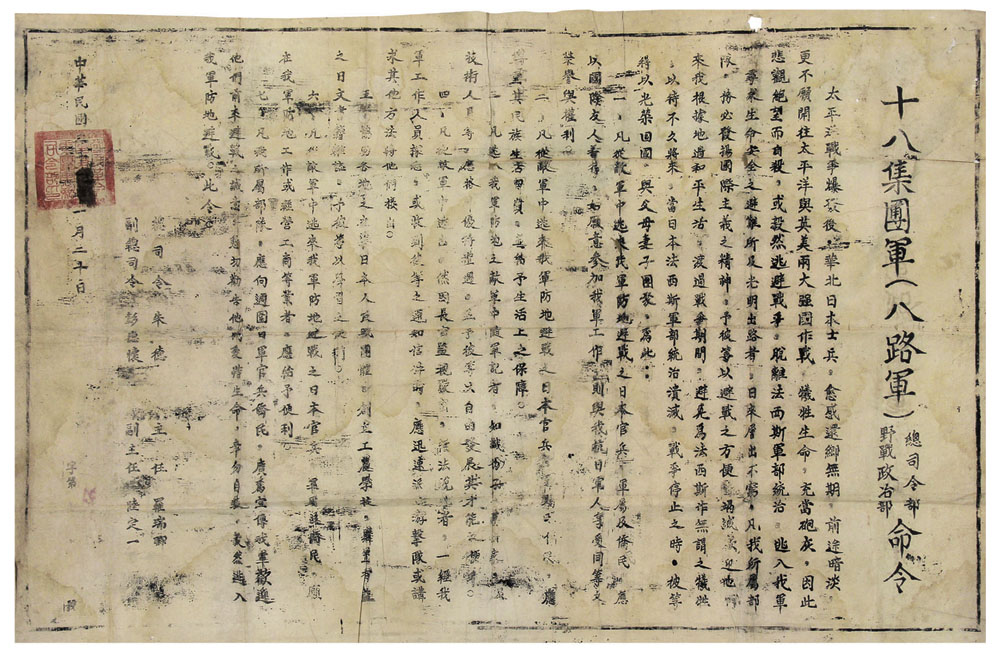 十八集團軍（八路軍）總司令部野戰政治部命令
太平洋戰爭爆發後，華北日本士兵，愈感還鄉無期，前途暗淡，
更不願開往太平洋與英美兩大强國作戰，犧牲生命，充當砲灰，因此
悲觀絕望而自殺，或毅然逃避戰爭，脫離法西斯軍部統治，逃入我軍
尋求生命安全之避難所及光明出路者，日來層出不窮，凡我所屬部
隊，務必發揚國際主義之精神，予彼等以避戰之方便，
來我根據地過和平生活，渡過戰爭期間，避免爲法西斯作無謂之犧牲
，以待不久將來，當日本法西斯軍部統治潰滅，戰爭停止之時，彼等
得以光榮回國，與父母妻子團聚，爲此：
一、凡從敵軍中逃來我軍防地避戰之日本官兵，軍屬及僑民，應
以國際友人看待，如願意參加我軍工作，則與我抗日軍人等受同等之
榮譽與權利。
二、凡從敵軍中逃來我軍防地避戰之日本官兵，應
尊重其民族生活習慣，並給予生活上之保障。
凡逃入我軍防地之敵軍中隨軍記者，知識份子，
技術人員等，應格外優待禮遇，並予彼等以自由發展其才能之便利。
四、凡從敵軍中逃出，然因長官監視嚴密，無法脫離者，一經我
軍工作人員報告，或收到彼等之通知信件時，應迅速派游擊隊或講
求其他方法將他們接出。
之日文書報雜誌，予彼等以學習之便利。
六、凡從敵軍中逃來我軍防地避戰之日本官兵，軍屬與僑民，願
在我軍防地工作或經營工商等業者，應給予便利。
七、凡我所屬部隊，應向週圍日軍官兵僑民，廣爲宣傳我軍歡迎
他們前來避戰之誠意，懇切勸告他們愛惜生命，幸勿自殺，毅然逃入
我軍防地避戰，此令。
總司令 朱德
副總司令 彭德懷
主任 羅瑞卿
副主任 陸定一
中華民國 一月二十日
字第 號